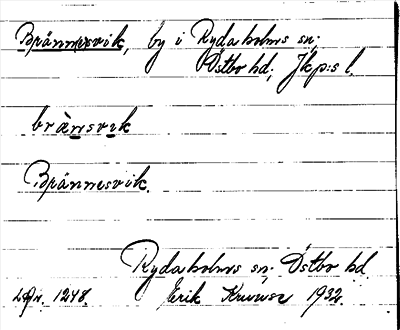 Brännesvik, by i Rydaholms sn.
Östbo hd, Jkp:s l.
brä̀nsvik
Brännesvik.
Rydaholms sn. Östbo hd.
1248. Erik 1932.